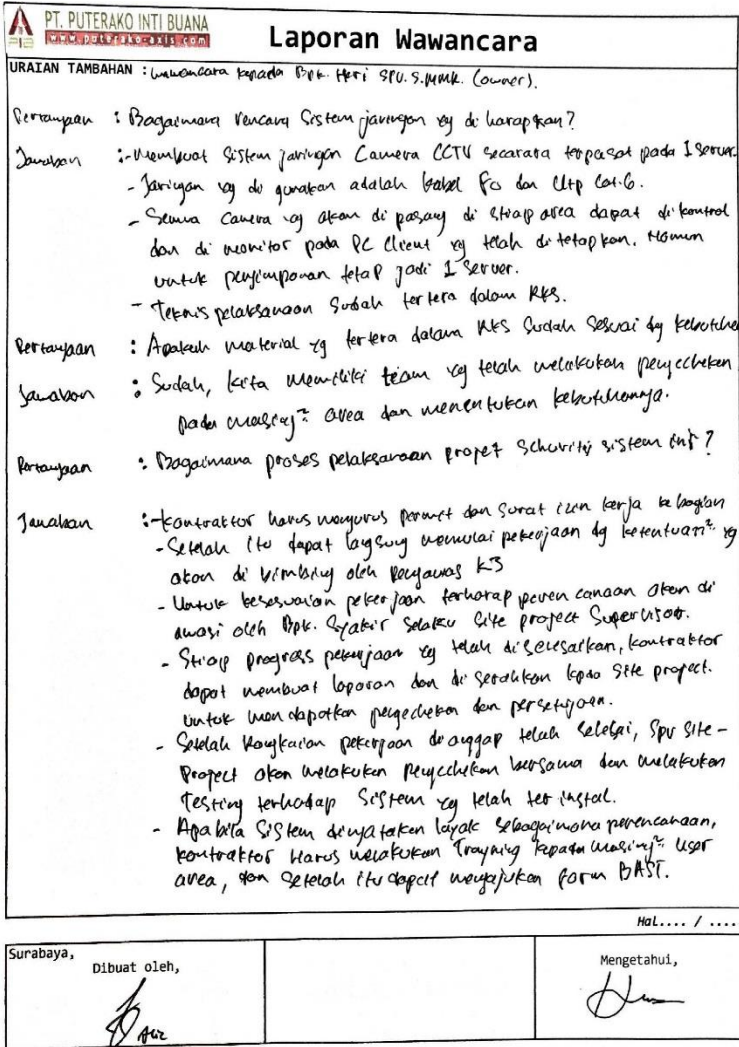 PT. PUTERAKO INTI BUANA
www.puterako-axis.com
Laporan Wawancara
URAIAN TAMBAHAN : Wawancara kepada Bpk. Heri SPU. S.MMK. (owner).
Pertanyaan : Bagaimana rencana Sistem jaringan yg di harapkan?
Jawaban :- Membuat Sistem jaringan Camera CCTV secarara terpusat pada 1 server.
- Jaringan yg di gunakan adalah kabel Fo dan Utp Cat.6.
- Semua Camera yg akan di pasang di Stiap area dapat di kontrol
dan di monitor pada PC Client yg telah di tetapkan. Namun
untuk penyimpanan tetap jadi 1 Server.
- Teknis pelaksanaan Sudah tertera dalam RKS.
Pertanyaan : Apakah material yg tertera dalam RKS Sudah Sesuai dg kebutuhan
Jawaban : Sudah, kita memiliki team yg telah melakukan pengechekan
pada masing² area dan menentukan kebutuhannya.
Pertanyaan : Bagaimana proses pelaksanaan projet Schurity sistem ini?
Jawaban :- kontraktor harus mengurus permit dan Surat izin kerja ke bagian
- Setelah itu dapat langsung memulai pekerjaan dg ketentuan² yg
akan di bimbing oleh pengawas K3
- Untuk kesesuaian pekerjaan terhadap perencanaan akan di
awasi oleh Bpk. Syakir Selaku Site project Supervisor.
- Stiap progress pekerjaan yg telah diselesaikan, kontraktor
dapat membuat laporan dan di serahkan kpda Site project.
untuk mendapatkan pengechekan dan persetujuan.
- Setelah Rangkaian pekerjaan di anggap telah Selesai, Spv Site-
Project akan melakukan Pengechekan bersama dan melakukan
Testing terhadap Sistem yg telah ter instal.
- Apabila Sistem dinyatakan layak sebagaimana perencanaan,
kontraktor Harus melakukan Trayning kepada masing² User
area, dan Setelah itu dapat mengajukan form BAST.
Hal.... / ....
Surabaya,
Dibuat oleh,
Mengetahui,